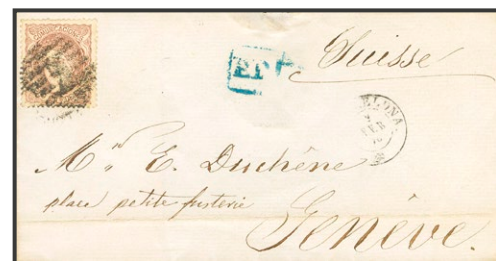 Suisse
P.D.
ELONA
Mr. E. Duchêne
place petite fusterie
Genève.